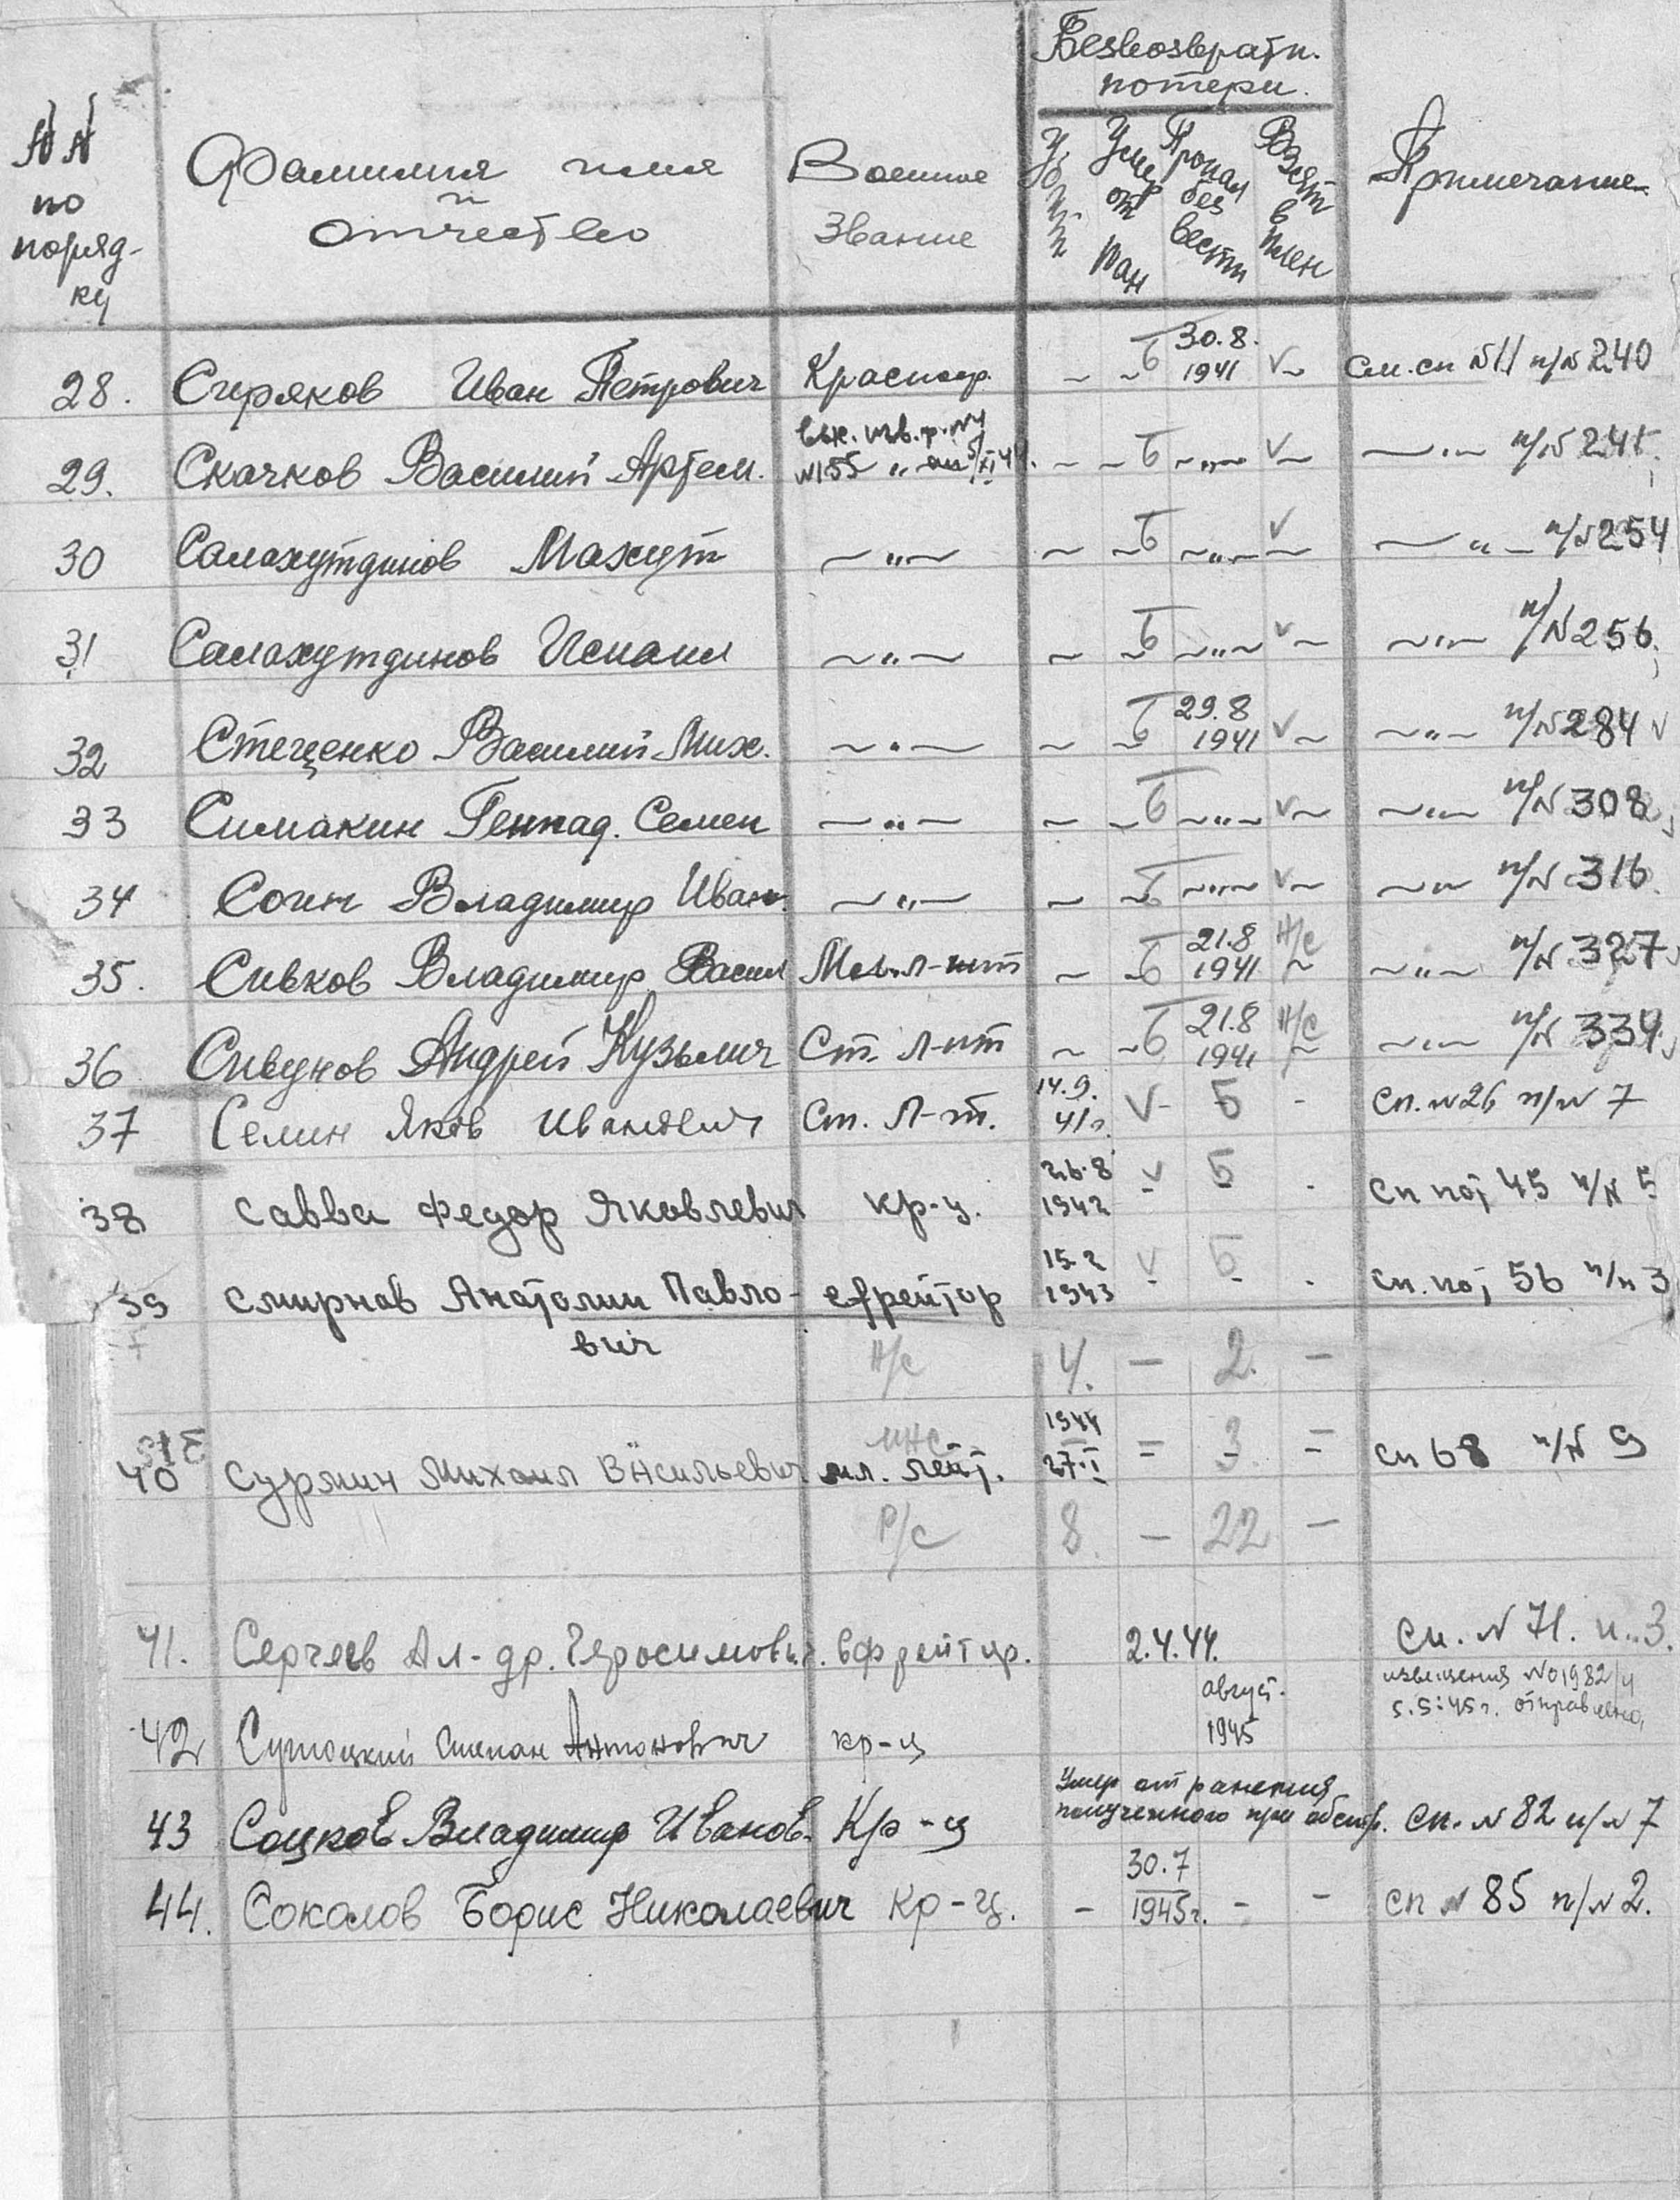 №№ по поряд-ку
Фамилия имя и отчество
Военное звание
Безвозвратн. потери.
Убит
Умер от ран
Пропал без вести
Взят в плен
Примечание
28. Сиряков Иван Петрович Красноар. ~ ~ Б 30.8. 1941 v~ см. сп №11 п/№ 240
29. Скачков Василий Артем. №155 ~ ~ Б ~„~ v~ ~„~ п/№ 245
30 Салахутдинов Махмут ~„~ ~ ~ Б ~„~ v~ ~„~ п/№ 254
31 Салахутдинов Исмаил ~„~ ~ ~ Б ~„~ v~ ~„~ п/№ 256
32 Стеценко Василий Мих. ~„~ ~ ~ Б 29.8 1941 v~ ~„~ п/№ 284 v
33 Симакин Геннад. Семен ~„~ ~ ~ Б ~„~ v~ ~„~ п/№ 308
34 Соин Владимир Иван. ~„~ ~ ~ Б ~„~ v~ ~„~ п/№ 316
35. Сивков Владимир Васил Мл. л-нт ~ ~ Б 21.8 1941 Н/с ~ ~„~ п/№ 327
36 Сивунов Андрей Кузьмич Ст. л-нт ~ ~ Б 21.8 1941 Н/с ~ ~„~ п/№ 334
37 Семин Яков Иванович Ст. л-т. 14.9. 41г. v- Б - сп. №26 п/№ 7
38 Савва Федор Яковлевич кр-ц. 26.8 1942 v Б - сп пот 45 п/№ 5
39 Смирнов Анатолий Павло-вич ефрейтор 15.2 1943 v Б - сп. пот 56 п/п 3
Н/с 4. — 2. —
40 Сурмин Михаил Васильевич МНС мл. лейт. 1944 27.I = 3 = сп 68 п/№ 9
Р/с 8. — 22 —
41. Сергеев Ал-др. Герасимович. Ефрейтор. 2.4.44. Сп. № 71. п. 3.
извещения №01982/ч
5.5.45г. отправлено,
42 Сутоцкий Степан Антонович кр-ц август. 1945
43 Соцков Владимир Иванов. Кр-ц Умер от ранения полученного при обстр. сп. № 82 п/№ 7
44. Соколов Борис Николаевич Кр-ц. - 30.7 1945г. - - сп № 85 п/№ 2.